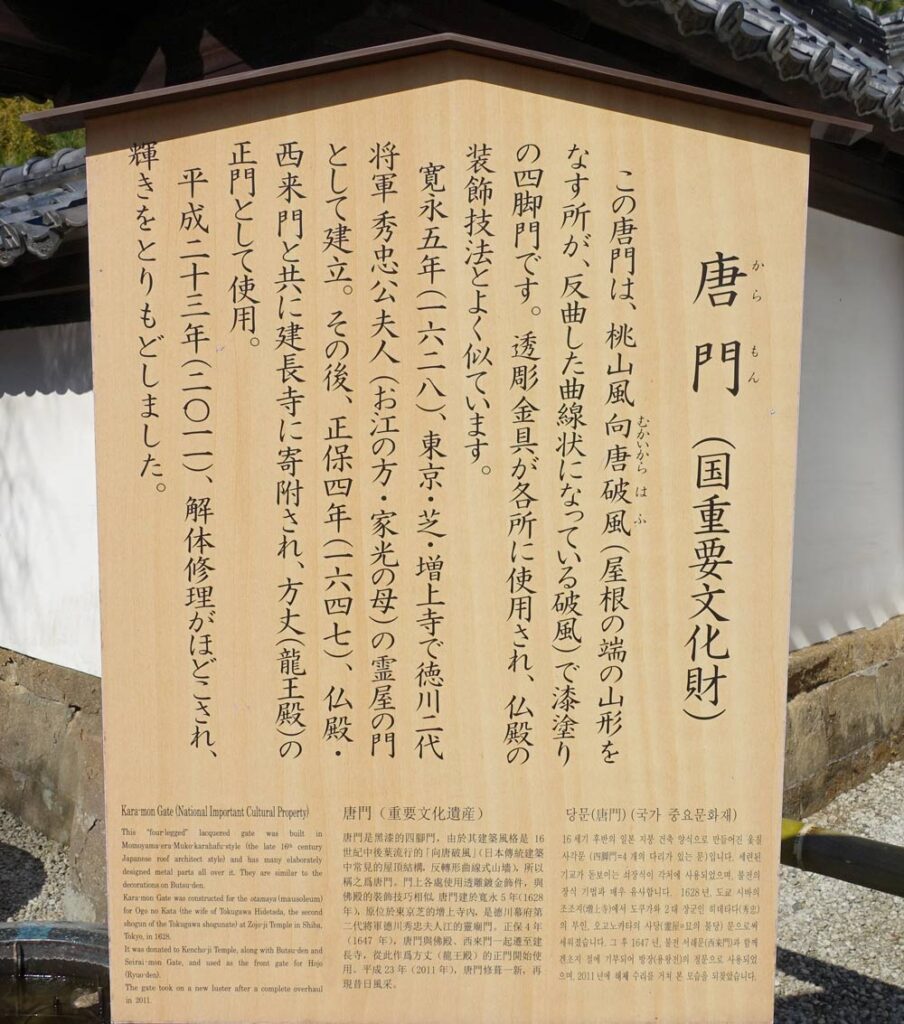 唐門（国重要文化財）
から もん
この唐門は、桃山風向唐破風（屋根の端の山形を
むかいから は ふ
なす所が、反曲した曲線状になっている破風）で漆塗り
の四脚門です。透彫金具が各所に使用され、仏殿の
装飾技法とよく似ています。
寛永五年（一六二八）、東京・芝・増上寺で徳川二代
将軍 秀忠公夫人（お江の方・家光の母）の霊屋の門
として建立。その後、正保四年（一六四七）、仏殿・
西来門と共に建長寺に寄附され、方丈（龍王殿）の
正門として使用。
平成二十三年（二〇一一）、解体修理がほどこされ、
輝きをとりもどしました。
Kara-mon Gate (National Important Cultural Property)
This "four-legged" lacquered gate was built in
Momoyama-era Muko-karahafu-style (the late 16th century
Japanese roof architect style) and has many elaborately
designed metal parts all over it. They are similar to the
decorations on Butsu-den.
Kara-mon Gate was constructed for the otamaya (mausoleum)
for Ogo no Kata (the wife of Tokugawa Hidetada, the second
shogun of the Tokugawa shogunate) at Zojo-ji Temple in Shiba,
Tokyo, in 1628.
It was donated to Kencho-ji Temple, along with Butsu-den and
Seirai-mon Gate, and used as the front gate for Hojo
(Ryuo-den).
The gate took on a new luster after a complete overhaul
in 2011.
唐門（重要文化遺産）
唐門是黑漆的四腳門，由於其建築風格是 16
世紀中後葉流行的「向唐破風」（日本傳統建築
中常見的屋頂結構，反轉形曲線式山墻），所以
稱之爲唐門。門上各處使用透雕鍍金飾件，與
佛殿的裝飾技巧相似。唐門建於寬永 5年(1628
年)，原位於東京芝的增上寺內，是德川幕府第
二代將軍德川秀忠夫人江的靈廟門。正保 4年
（1647 年），唐門與佛殿、西來門一起遷至建
長寺，從此作爲方丈（龍王殿）的正門開始使
用。平成 23年（2011年），唐門修葺一新，再
現昔日風采。
당문(唐門)(국가 중요문화재)
16 세기 후반의 일본 지붕 건축 양식으로 만들어진 옻칠
사각문 (四脚門=4 개의 다리가 있는 문)입니다. 세련된
기교가 돋보이는 쇠장식이 각처에 사용되었으며, 불전의
장식 기법과 매우 유사합니다. 1628년, 도쿄 시바의
조조지(增上寺)에서 도쿠가와 2대 장군인 히데타다(秀忠)
의 부인, 오고노카타의 사당(霊屋=묘의 불당) 문으로써
세워졌습니다. 그 후 1647년, 불전 서래문(西来門)과 함께
겐초지 절에 기부되어 방장(용왕전)의 정문으로 사용되었
으며, 2011년에 해체 수리를 거쳐 본 모습을 되찾았습니다.